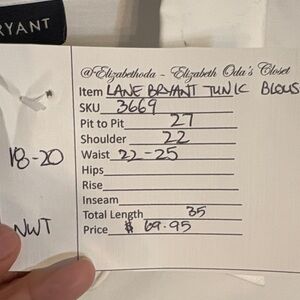 RYANT
@Elizabethoda - Elizabeth Oda's Closet
Item LANE BRYANT TUNIC BLOUS
SKU 3669
Pit to Pit 27
Shoulder 22
Waist 22-25
Hips
Rise
Inseam
Total Length 35
Price $ 69.95
18-20
NWT